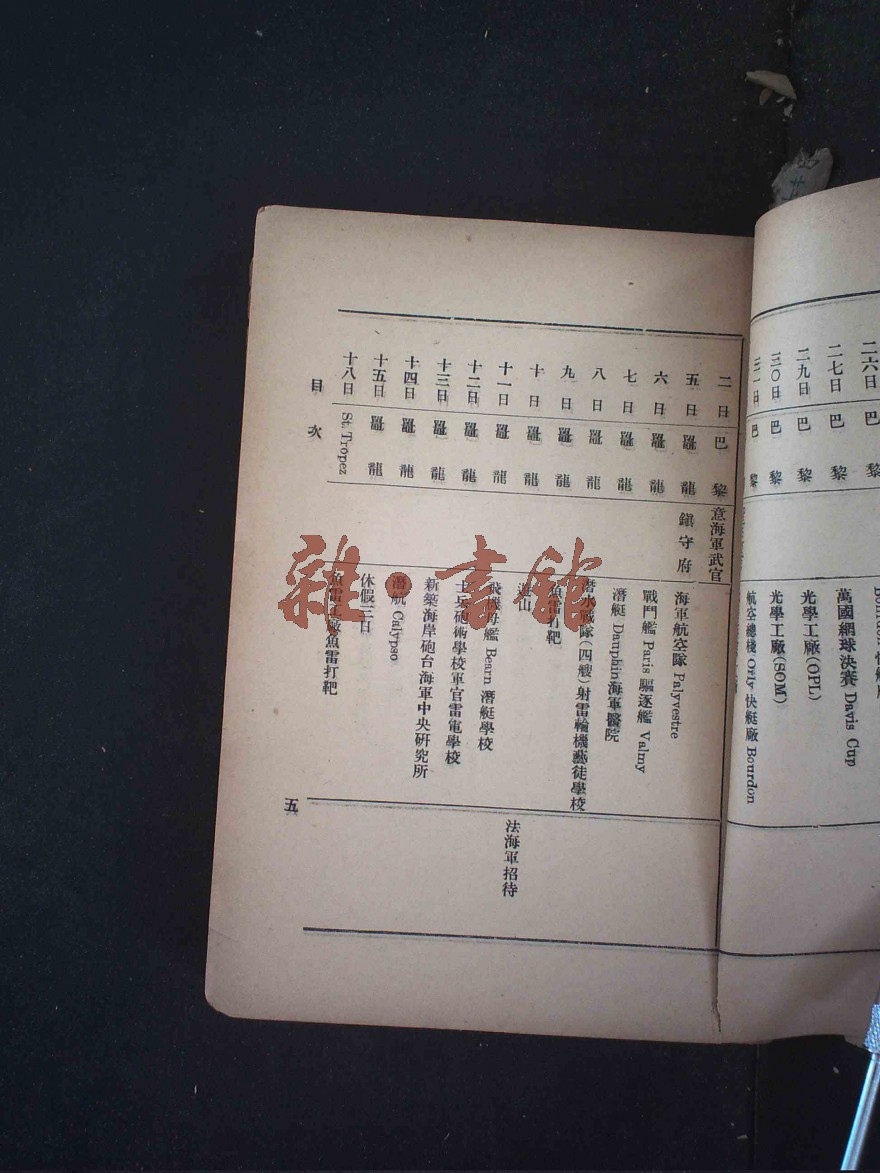 二六日 巴黎
二七日 巴黎 萬國網球決賽 Davis Cup
二九日 巴黎 光學工廠(OPL)
三〇日 巴黎 光學工廠(SOM)
三一日 巴黎 航空總棧 Orly 快艇廠 Bourdon
二日 巴黎 意海軍武官
五日 龍 鎮守府 海軍航空隊 Palyvestre
六日 龍 戰鬥艦 Paris 驅逐艦 Valmy
七日 龍 潛艇 Dauphin 海軍醫院
八日 龍 潛水戰隊(四艘)射雷輪機藝徒學校
九日 龍 魚雷打靶
十日 龍 遊山 法海軍招待
十一日 龍 飛機母艦 Bearn 潛艇學校
十二日 龍 士兵砲術學校軍官雷電學校
十三日 龍 新築海岸砲台海軍中央研究所
十四日 龍 潛航 Calypso
十五日 龍 休假三日
十八日 St. Tropez 魚雷工廠魚雷打靶
目次
五
雜·書館